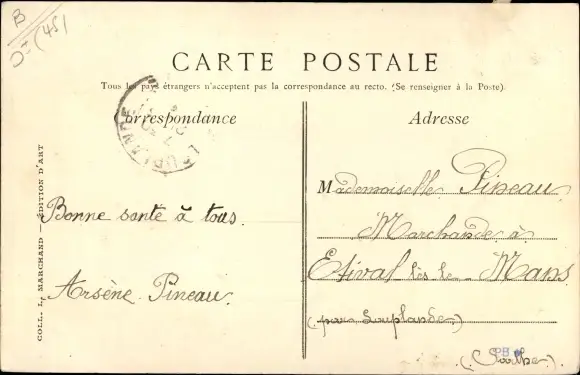 B
CARTE POSTALE
Tous les pays étrangers n'acceptent pas la correspondance au recto. (Se renseigner à la Poste).
Correspondance
Bonne santé à tous.
Arsène Pineau.
COLL. L. MARCHAND — ÉDITION D'ART
Adresse
Mademoiselle Pineau
Marchande à
Etival lès le Mans
(par Louplande)
(Sarthe).